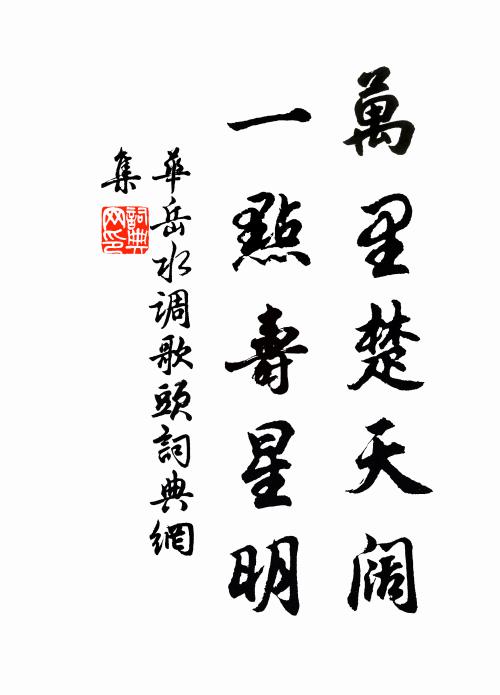 萬里楚天阔
一點壽星明
華岳水调歌頭詞典網
集
詞典网印